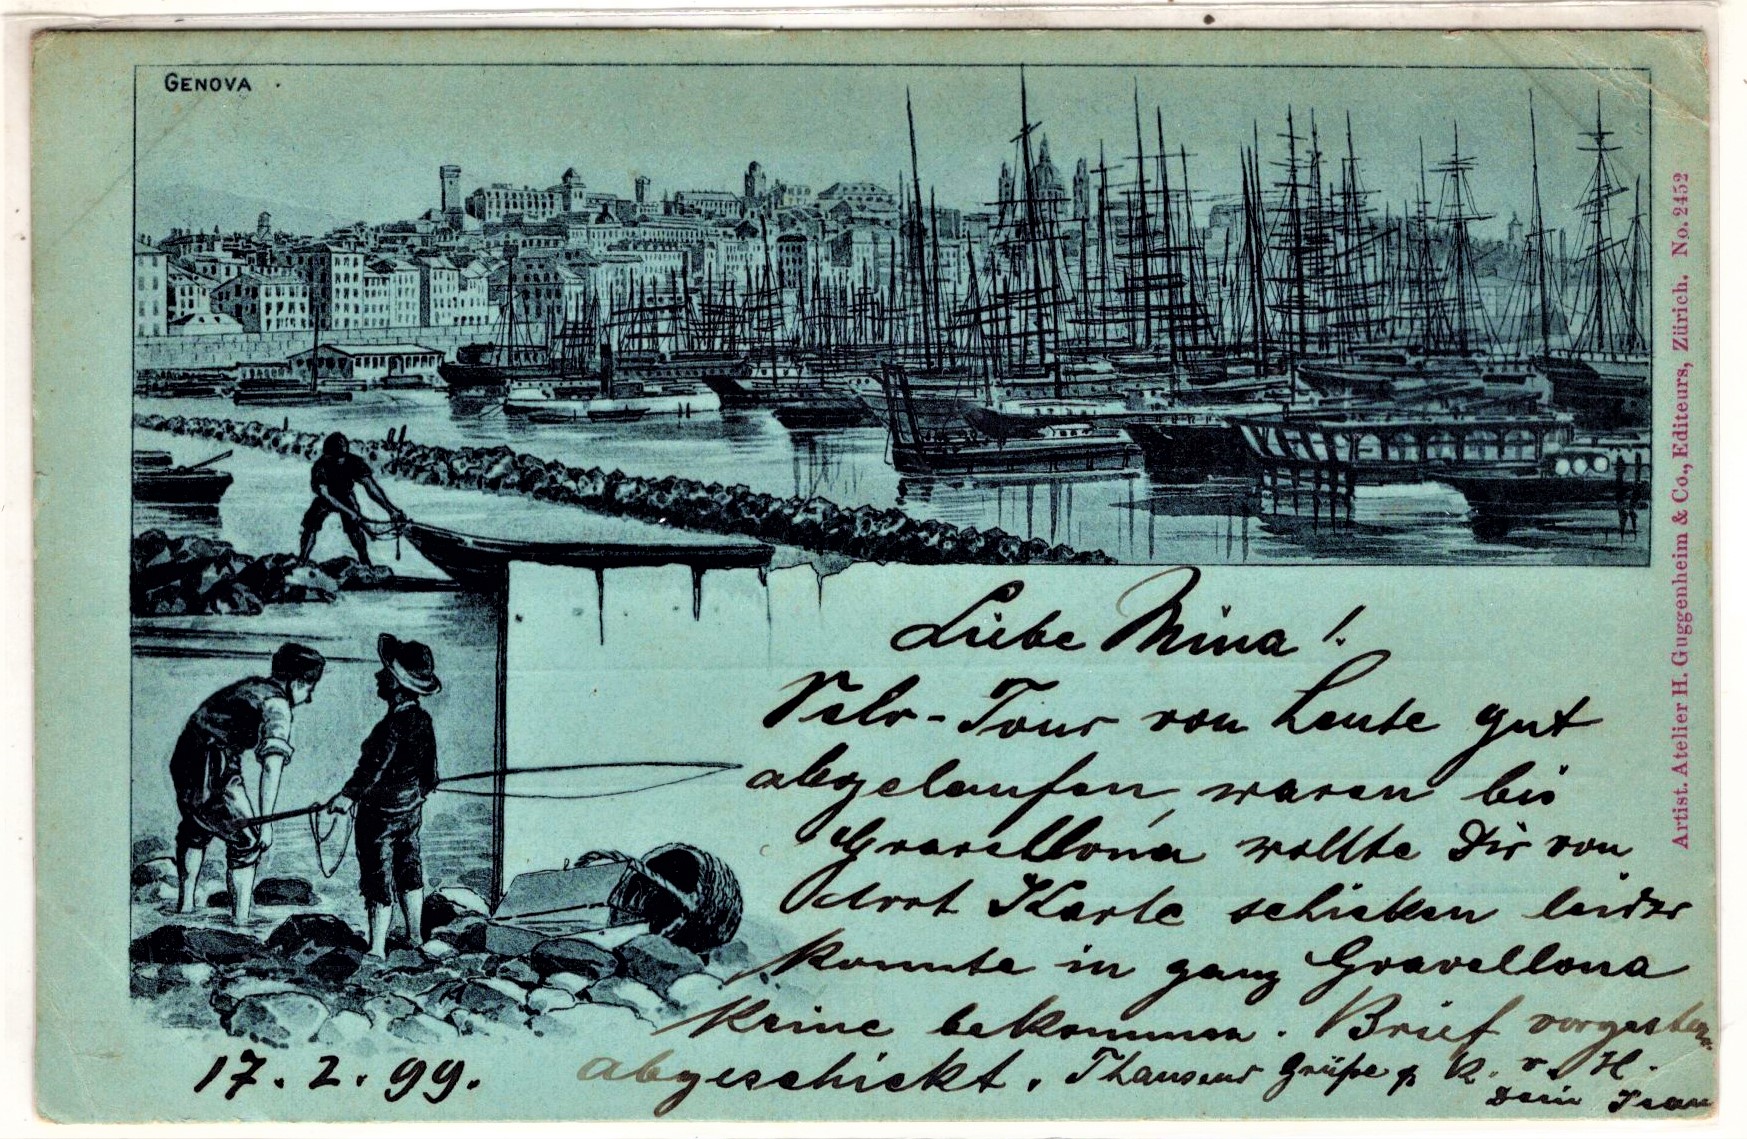 GENOVA
Artist. Atelier H. Guggenheim & Co., Editeurs, Zürich. No. 2452
Liebe Mina!
Velo-Tour von heute gut
abgelaufen, waren bis
Gravellona wollte Dir von
dort Karte schicken leider
konnte in ganz Gravellona
keine bekommen. Brief vorgestern
abgeschickt. Tausend Grüße & K. v. H.
Dein
17.2.99.